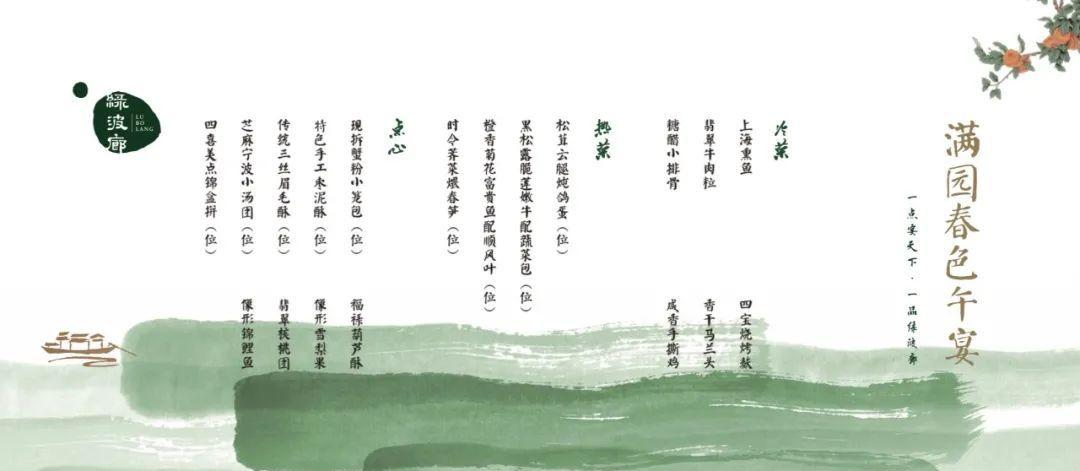 满园春色午宴
一点宴天下·一品绿波廊
冷菜
上海熏鱼 四宝烧烤麸
翡翠牛肉粒 香干马兰头
糖醋小排骨 咸香手撕鸡
热菜
松茸云腿炖鸽蛋（位）
黑松露脆莲嫩牛配蔬菜包（位）
橙香菊花富贵鱼配顺风叶（位）
时令荠菜煨春笋（位）
点心
现拆蟹粉小笼包（位） 福禄葫芦酥
特色手工枣泥酥（位） 像形雪梨果
传统三丝眉毛酥（位） 翡翠核桃团
芝麻宁波小汤团（位） 像形锦鲤鱼
四喜美点锦盒拼（位）
綠波廊
LU
BO
LANG